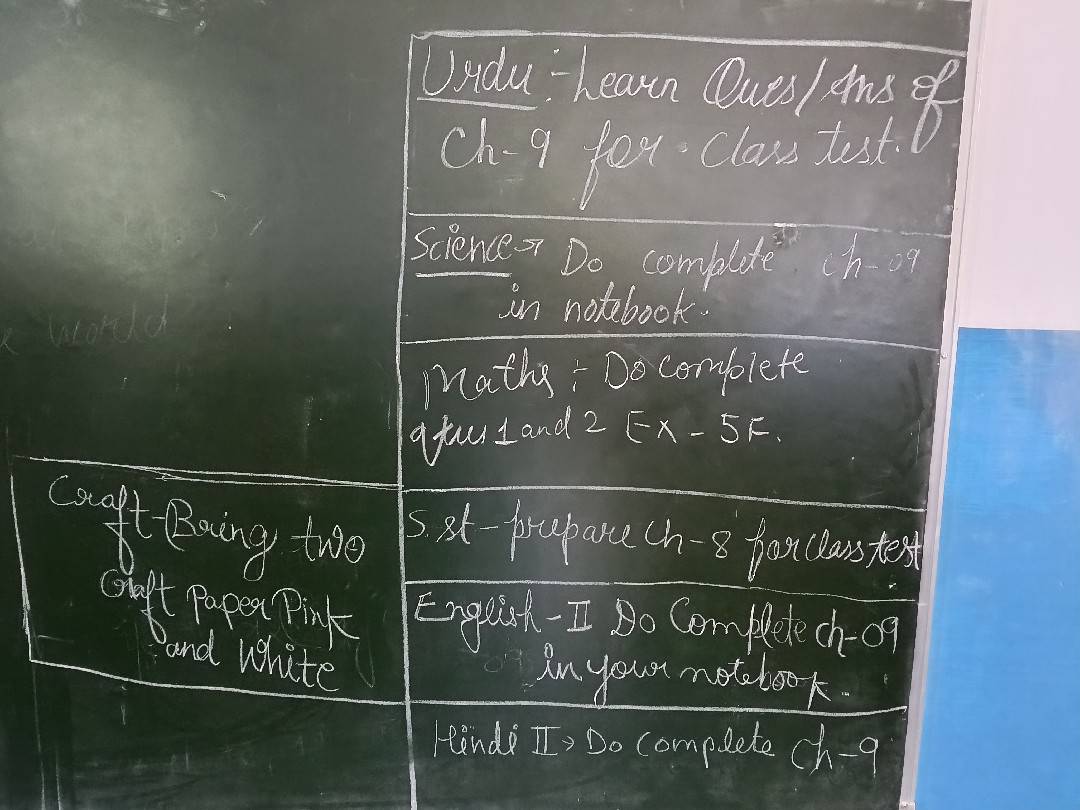 Urdu :- Learn Ques/Ans of
Ch-9 for class test.
Science → Do complete ch-09
in notebook.
Maths :- Do complete
1 and 2 Ex - 5F.
S.st - prepare Ch-8 for class test
English - II Do Complete ch-09
in your notebook.
Hindi II → Do complete Ch-9
Craft - Bring two
Craft Paper Pink
and White
World